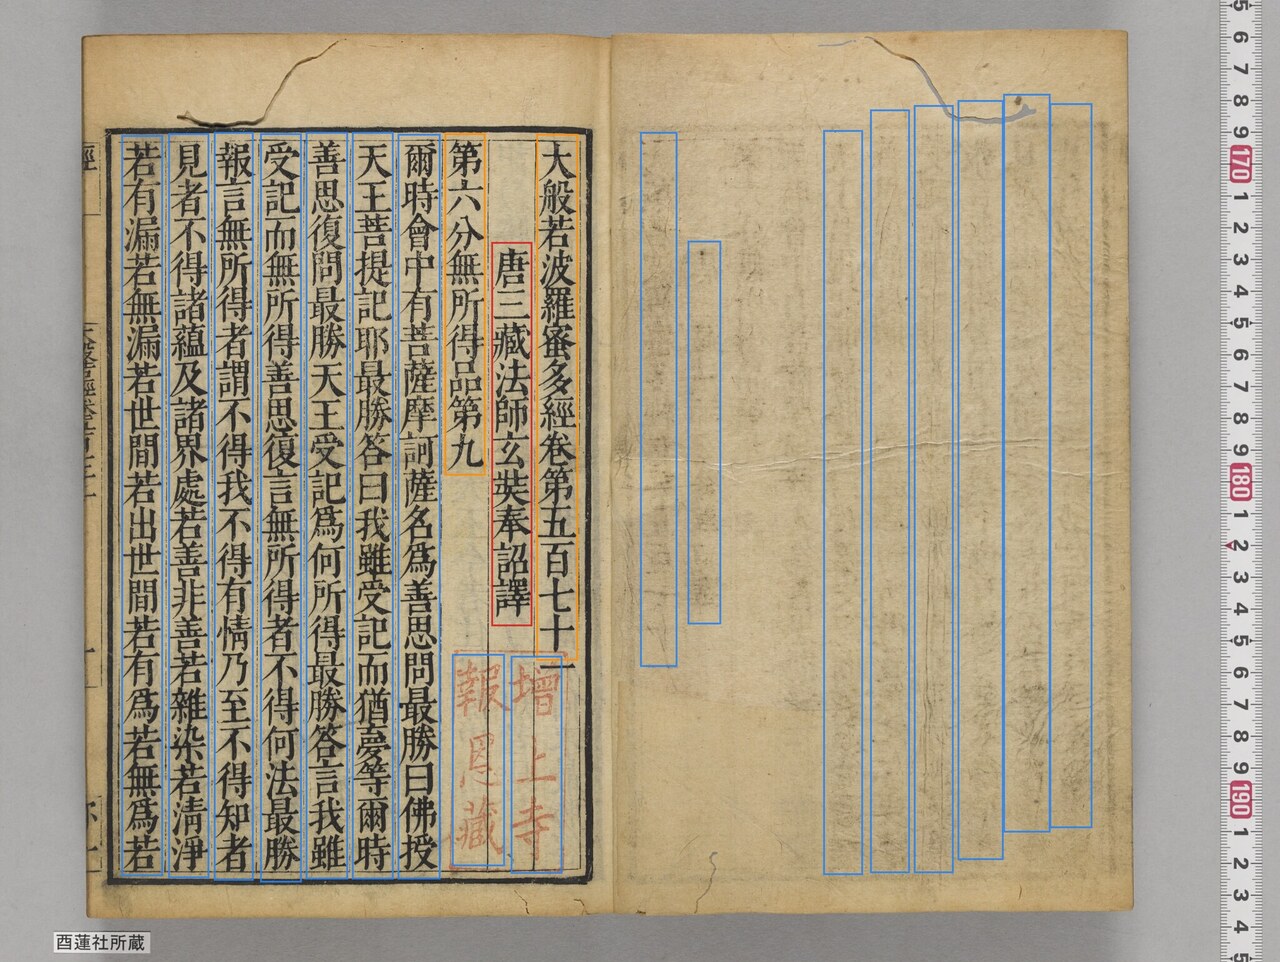 大般若波羅蜜多經卷第五百七十一
唐三藏法師玄奘奉詔譯
第六分無所得品第九
爾時會中有菩薩摩訶薩名爲善思問最勝曰佛授
天王菩提記耶最勝答曰我雖受記而猶夢等爾時
善思復問最勝天王受記爲何所得最勝答言我雖
受記而無所得善思復言無所得者不得何法最勝
報言無所得者謂不得我不得有情乃至不得知者
見者不得諸蘊及諸界處若善非善若雜染若淸淨
若有漏若無漏若世間若出世間若有爲若無爲若
增上寺
報恩藏
酉蓮社所蔵
5
6
7
8
9
170
1
2
3
4
5
6
7
8
9
180
1
2
3
4
5
6
7
8
9
190
1
2
3
4
5